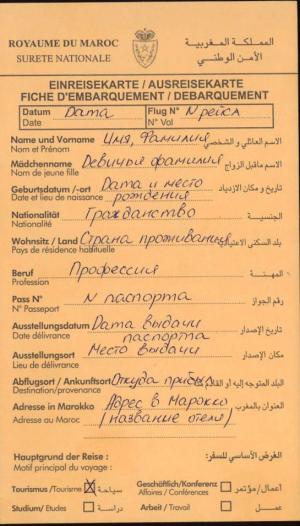 ROYAUME DU MAROC
المملكة المغربية
SURETE NATIONALE
الأمن الوطني
EINREISEKARTE / AUSREISEKARTE
FICHE D'EMBARQUEMENT / DEBARQUEMENT
Datum Дата Flug N° N рейса
Date N° Vol
Name und Vorname Имя, Фамилия الاسم العائلي و الشخصي
Nom et Prénom
Mädchenname Девичья фамилия الاسم ماقبل الزواج
Nom de jeune fille
Geburtsdatum /-ort Дата и место تاريخ و مكان الازدياد
Date et lieu de naissance рождения
Nationalität Гражданство الجنسيــة
Nationalité
Wohnsitz / Land Страна проживания بلد السكنى
Pays de résidence habituelle
Beruf Профессия المهنــة
Profession
Pass N° N паспорта رقم الجواز
N° Passeport
Ausstellungsdatum Дата выдачи تاريخ الإصدار
Date délivrance паспорта
Ausstellungsort Место выдачи مكان الإصدار
Lieu de délivrance
Abflugsort / Ankunftsort Откуда прибыл البلد المتوجه إليه أو
Destination/provenance
Adresse in Marokko Адрес в Марокко العنوان بالمغرب
Adresse au Maroc (название отеля)
Hauptgrund der Reise : الغرض الأساسي للسفر:
Motif principal du voyage :
Tourismus /Tourisme X سياحة Geschäftlich/Konferenz أعمال/مؤتمر
Affaires / Conférences
Studium/ Etudes دراسة Arbeit / Travail عمــل